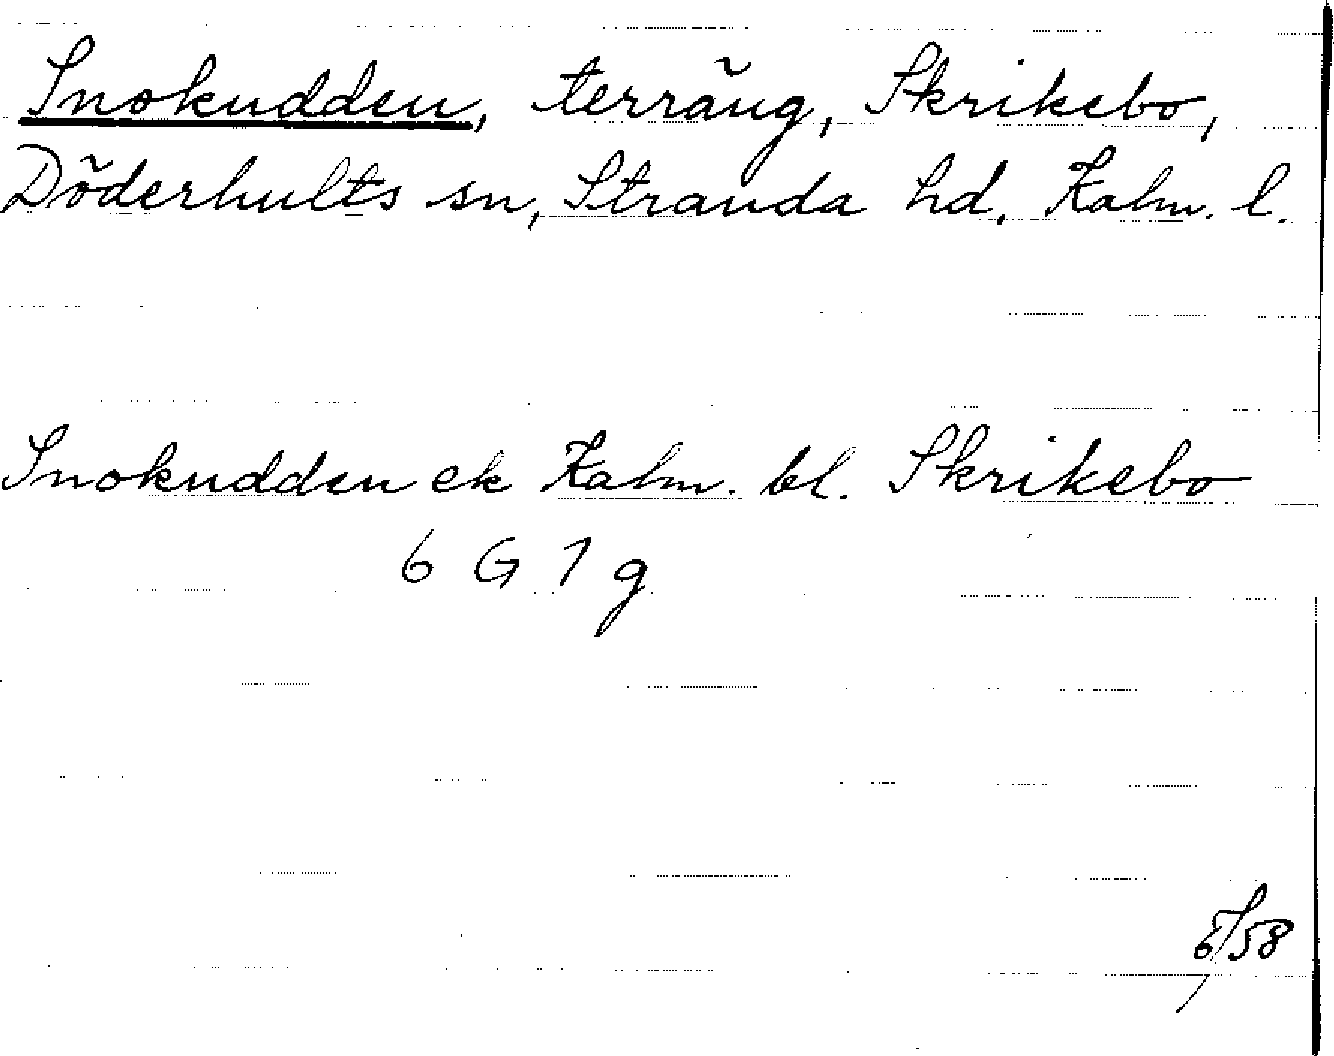 Snokudden, terräng, Skrikebo,
Döderhults sn, Stranda hd, Kalm. l.
Snokudden ek Kalm. bl. Skrikebo
6 G 1 g